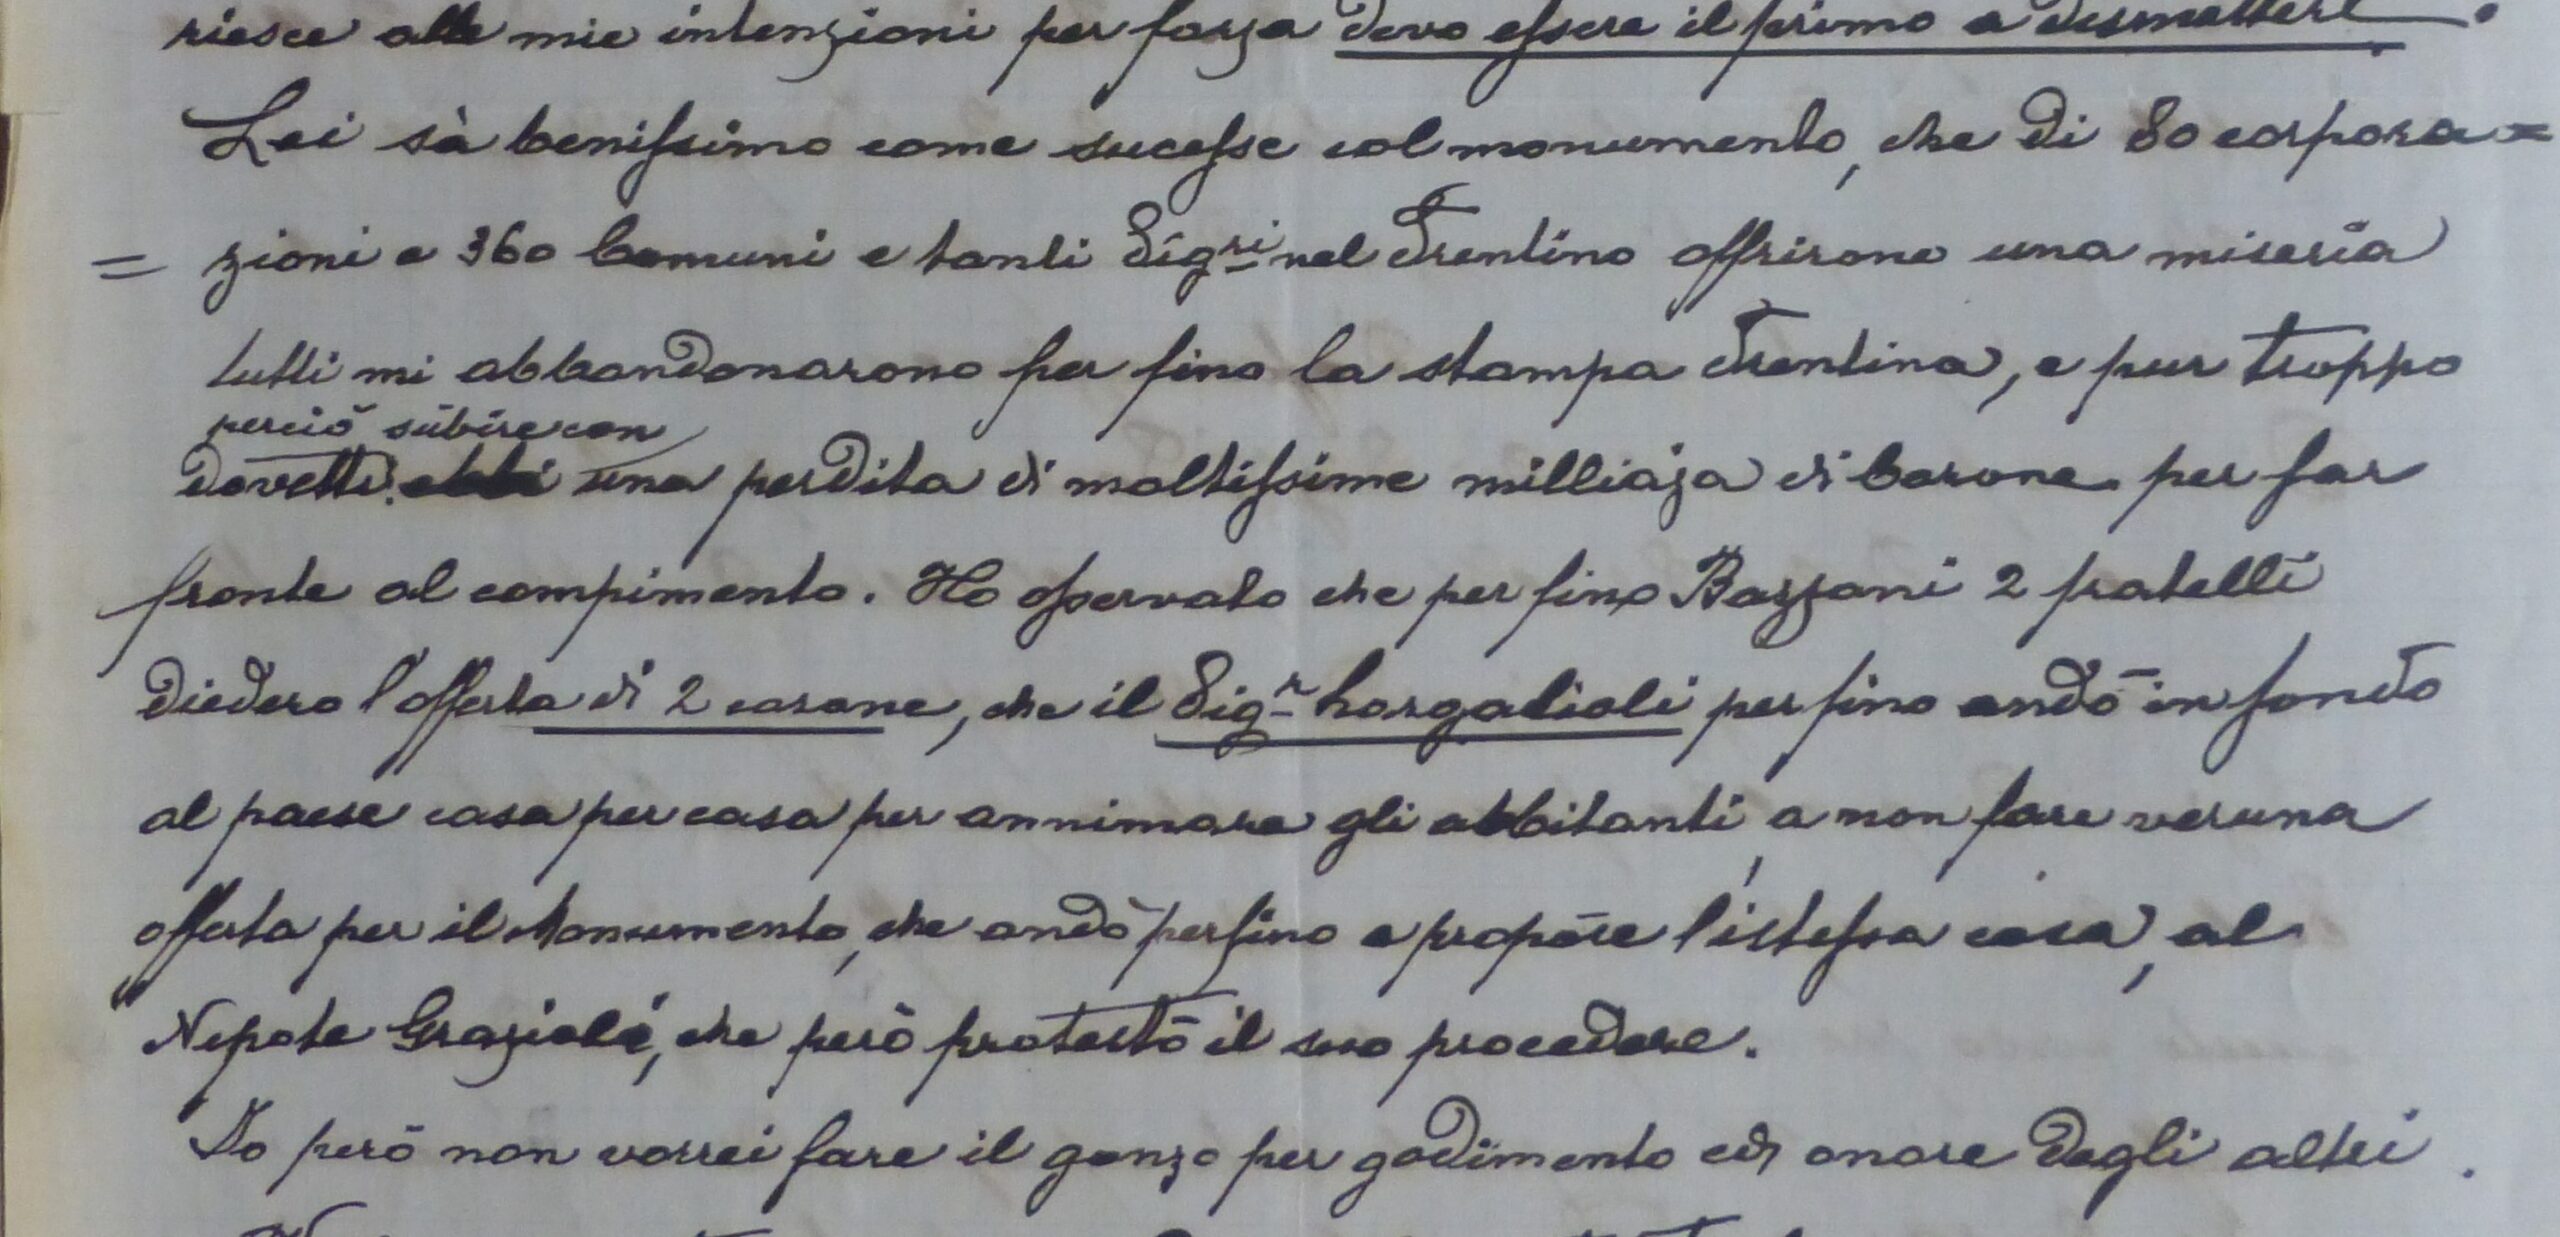 riesce alle mie intenzioni per forza devo essere il primo a dismettere.
Lei sà benissimo come sucesse col monumento, che di 80 corpora=
=zioni e 360 Comuni e tanti Sigri nel Trentino offrirono una miseria
tutti mi abbandonarono per fino la stampa Trentina, e pur troppo
perciò subire con
dovetti ebbi una perdita di moltissime milliaja di Corone per far
fronte al compimento. Ho osservato che per fino Bazzani 2 fratelli
diedero l'offerta di 2 corone, che il Sigr per fino andò in fondo
al paese casa per casa per annimare gli abbitanti, a non fare veruna
offerta per il Monumento, che andò perfino a propóre l'istessa cosa, al
Nepote Grazioli, che però protestò il suo procedere.
Io però non vorrei fare il gonzo per godimento ed onore degli altri.